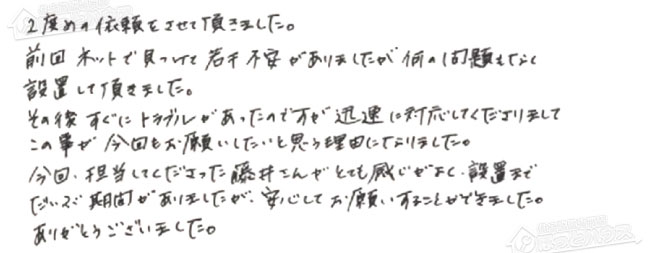 2度めの依頼をさせて頂きました。
前回ネットで見つけて若干不安がありましたが何の問題もなく
設置して頂きました。
その後すぐにトラブルがあったのですが迅速に対応してくださりまして
この事が今回もお願いしたいと思う理由になりました。
今回、担当してくださった藤井さんがとても感じがよく、設置まで
だいぶ期間がありましたが、安心してお願いすることができました。
ありがとうございました。